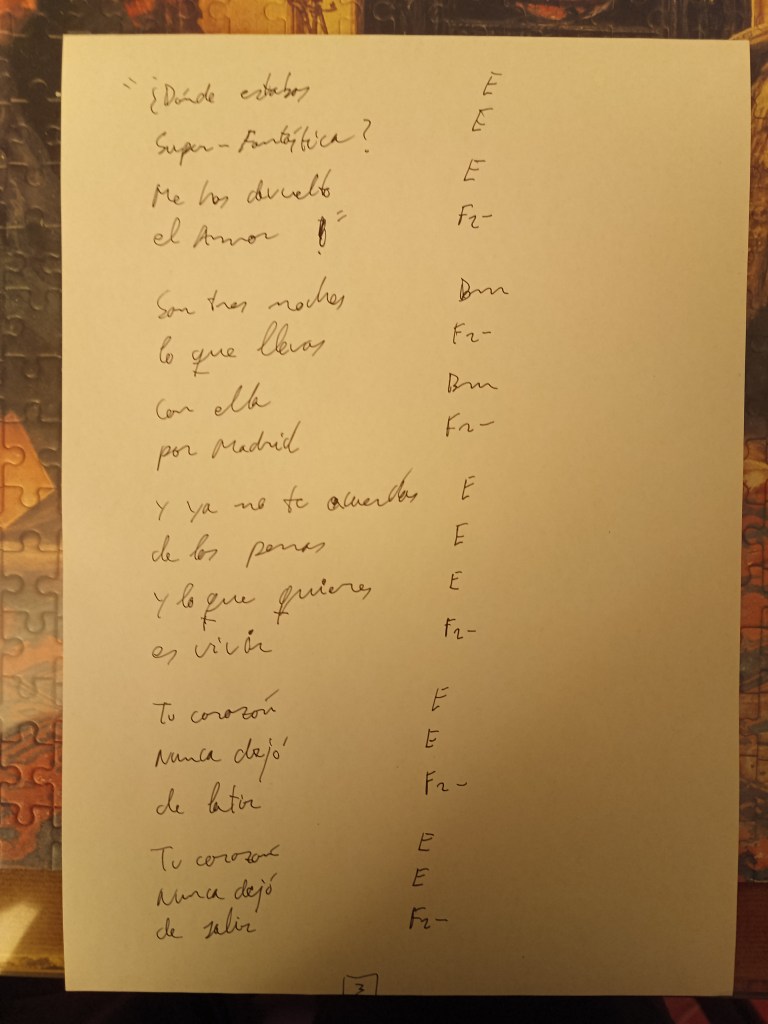 "¿Dónde estabas E
Super-Fantástica? E
Me has devuelto E
el Amor !" F2-
Son tres noches Bm
lo que llevas F2-
Con ella Bm
por Madrid F2-
Y ya no te acuerdas E
de las penas E
Y lo que quieres E
es vivir F2-
Tu corazón E
Nunca dejó E
de latir F2-
Tu corazón E
Nunca dejó E
de salir F2-
3